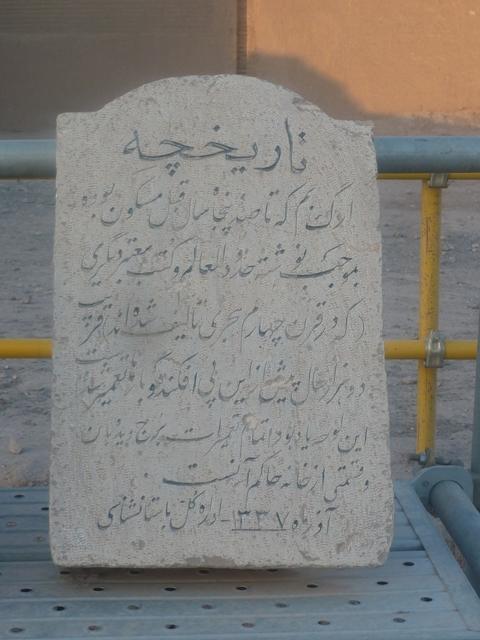 تاریخچه
ارگ بم که تا صد و پنجاه سال قبل مسکون بوده
بموجب نوشته حدود العالم و کتب معتبر دیگری
که در قرن چهارم هجری تالیف شده اند قریب
دو هزار سال پیش از این پی افکنده و بارها تعمیر شده است
این لوح یادبود اتمام تعمیرات برج دیده بان
و قسمتی از خانه حاکم آنست
آذر ماه ۱۳۳۷ - اداره کل باستانشناسی